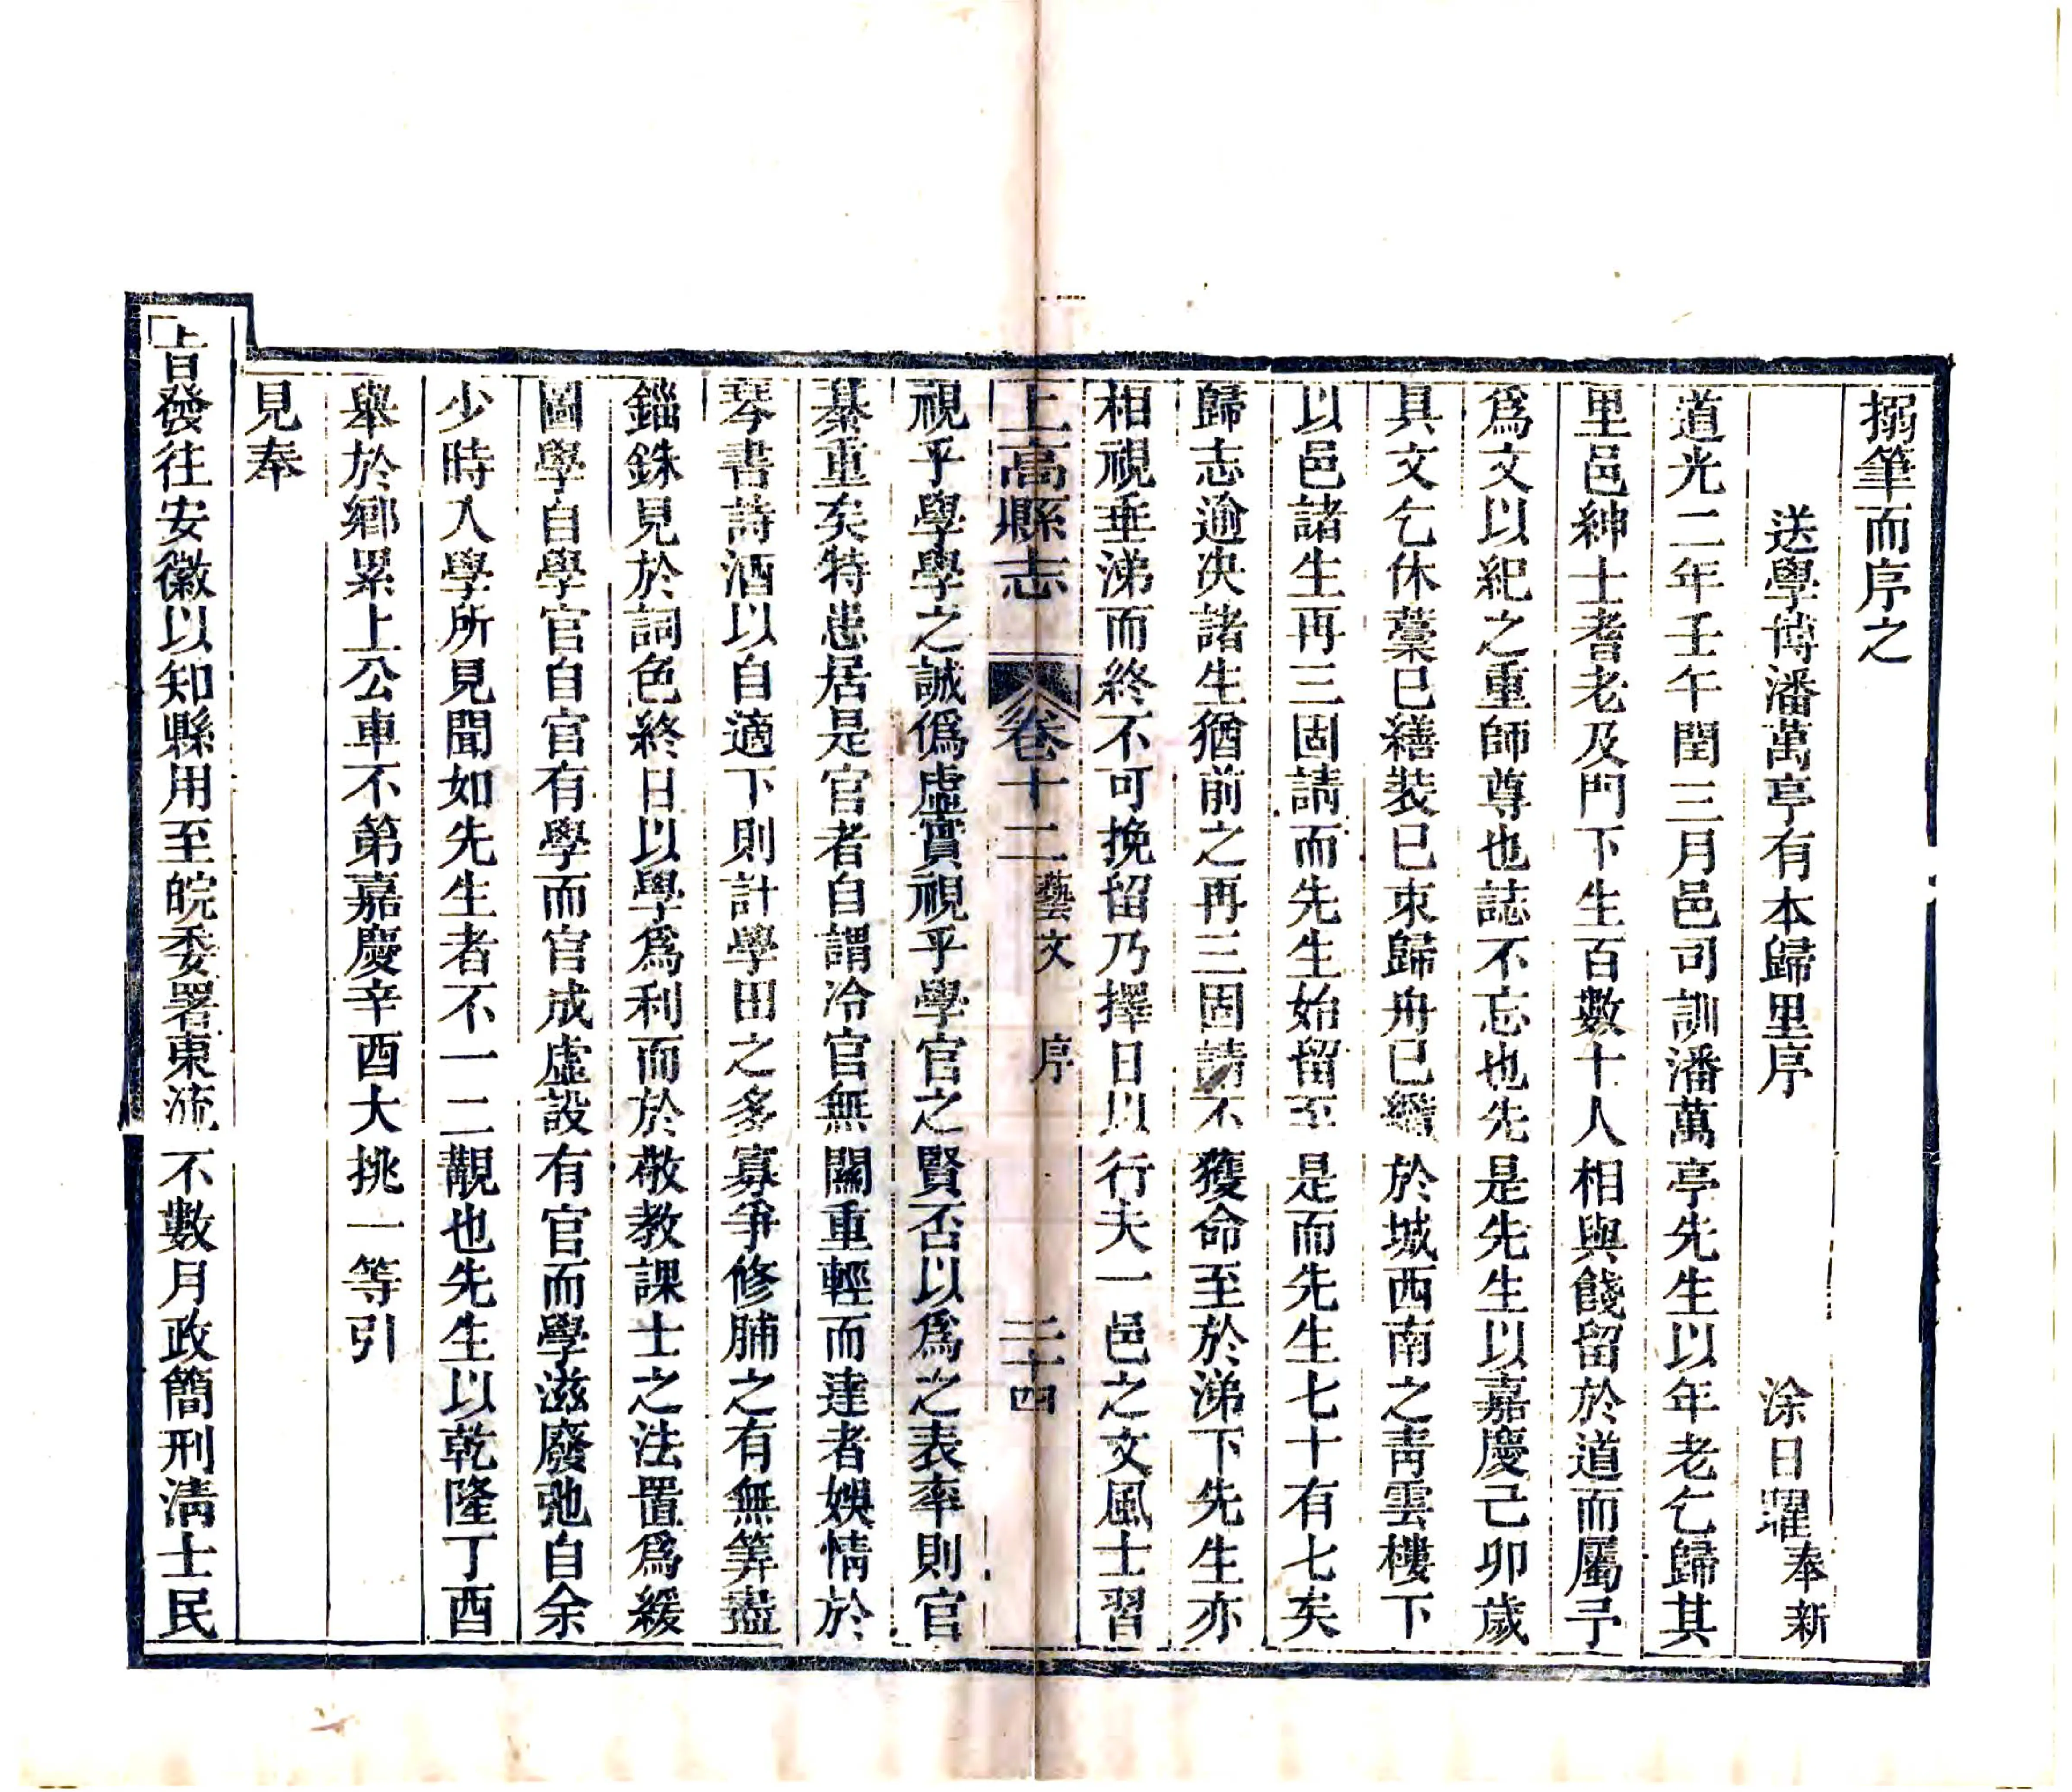 搦筆而序之
送學博潘萬亭有本歸里序 涂日㬢奉新
道光二年壬午閏三月邑司訓潘萬亭先生以年老乞歸其
里邑紳士耆老及門下生百數十人相與餞留於道而屬予
爲文以紀之重師尊也誌不忘也先是先生以嘉慶己卯歲
具文乞休藁已繕裝已束歸舟已艤於城西南之靑雲樓下
以邑諸生再三固請而先生始留至是而先生七十有七矣
歸志逾决諸生猶前之再三固請不獲命至於涕下先生亦
相視垂涕而終不可挽留乃擇日以行夫一邑之文風士習
上高縣志 卷十二藝文 序 二十四
視乎學學之誠僞虛實視乎學官之賢否以爲之表率則官
綦重矣特患居是官者自謂冷官無關重輕而達者娛情於
琴書詩酒以自適下則計學田之多寡爭修脯之有無筭盡
錙銖見於詞色終日以學爲利而於敬教課士之法置爲緩
圖學自學官自官有學而官成虛設有官而學滋廢弛自余
少時入學所見聞如先生者不一二覯也先生以乾隆丁酉
舉於鄉累上公車不第嘉慶辛酉大挑一等引
見奉
旨發往安徽以知縣用至皖委署東流不數月政簡刑淸士民